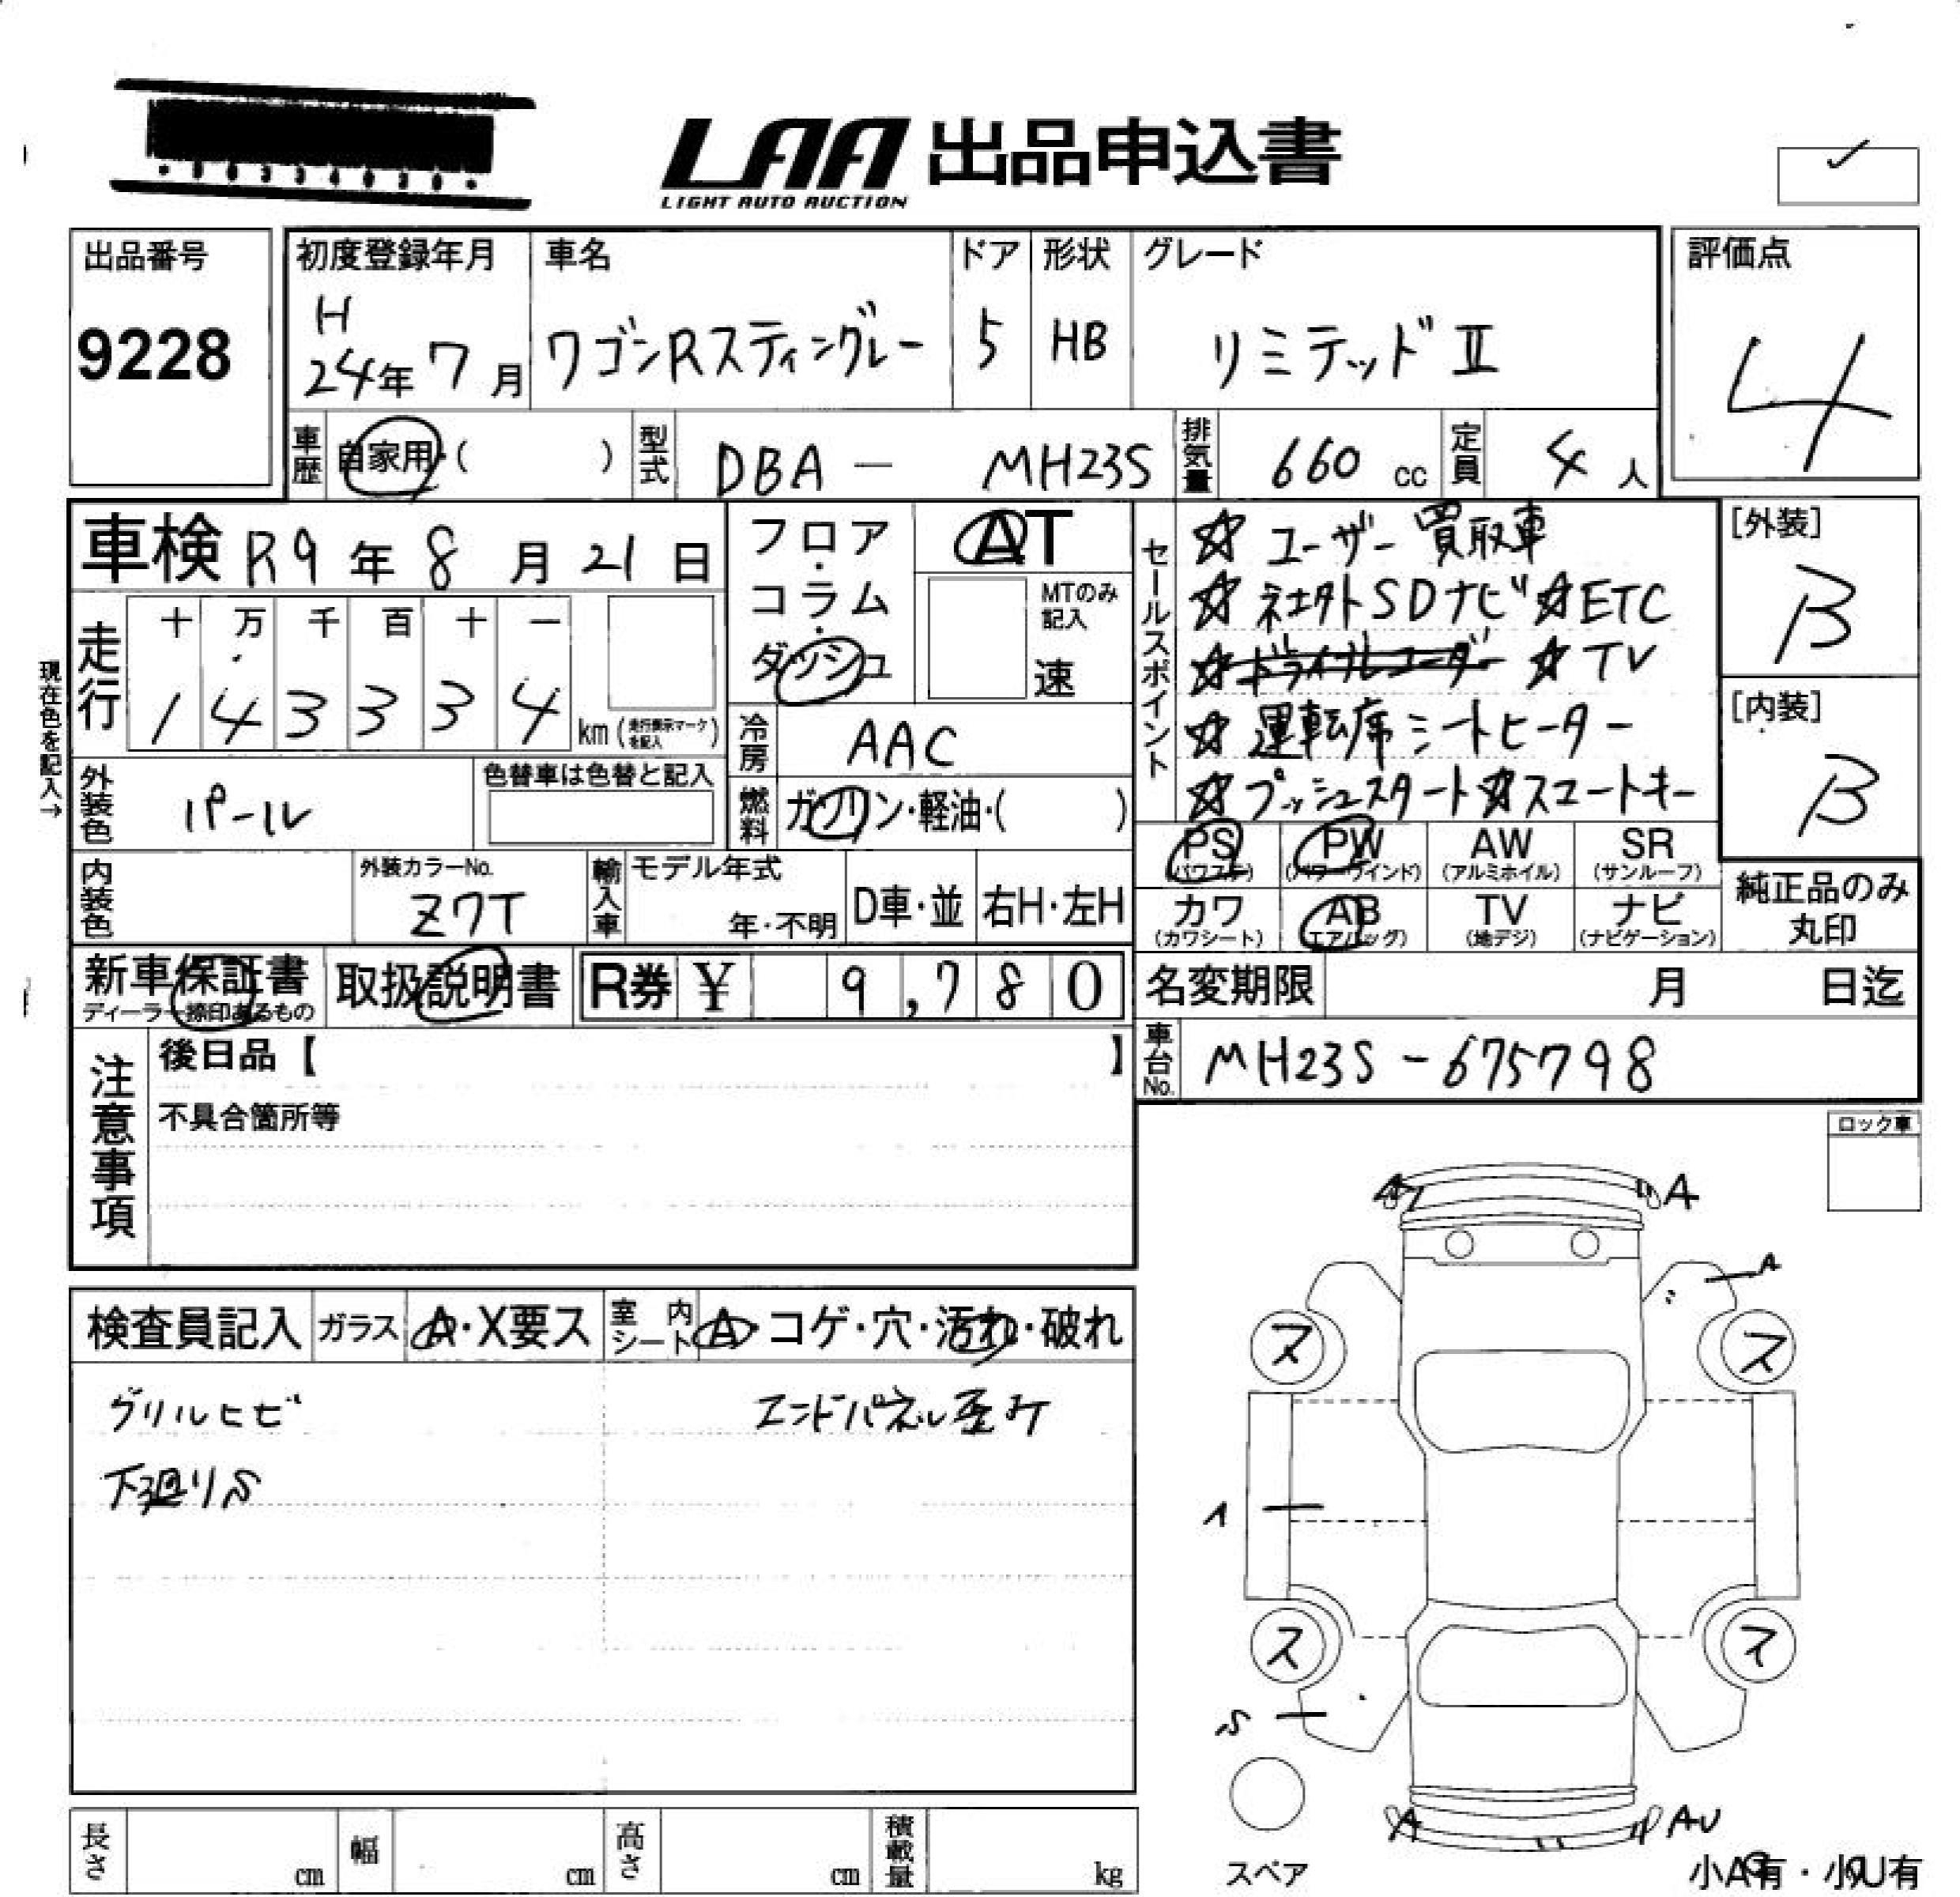 LAA 出品申込書
LIGHT AUTO AUCTION
出品番号 9228
初度登録年月 H 24年 7月
車名 ワゴンRスティングレー
ドア 5
形状 HB
グレード リミテッドⅡ
評価点 4
車歴 自家用・( )
型式 DBA - MH23S
排気量 660 cc
定員 4 人
車検 R9年 8月 21日
走行 十 万 千 百 十 一
1 4 3 3 3 4 km (走行表示マークを記入)
現在色を記入→
外装色 パール
色替車は色替と記入
内装色
外装カラーNo. Z7T
輸入車 モデル年式 年・不明 D車・並 右H・左H
フロア・コラム・ダッシュ
AT
MTのみ記入 速
冷房 AAC
燃料 ガソリン・軽油・( )
セールスポイント
☆ ユーザー買取車
☆ 社外SDナビ ☆ETC
☆ドライブレコーダー ☆TV
☆ 運転席シートヒーター
☆プッシュスタート☆スマートキー
[外装] B
[内装] B
PS (パワステ) PW (パワーウインド) AW (アルミホイル) SR (サンルーフ)
カワ (カワシート) AB (エアバッグ) TV (地デジ) ナビ (ナビゲーション)
純正品のみ丸印
新車保証書 ディーラー捺印あるもの
取扱説明書
R券 ¥ 9,780
名変期限 月 日迄
車台No. MH23S-675798
注意事項
後日品【 】
不具合箇所等
ロック車
検査員記入 ガラス A・X要ス 室内シート A・コゲ・穴・汚れ・破れ
グリルヒビ エンドパネル歪み
下廻りS
A A
A
ス ス
ス ス
S
A AU
スペア
小A有・小U有
長さ cm 幅 cm 高さ cm 積載量 kg